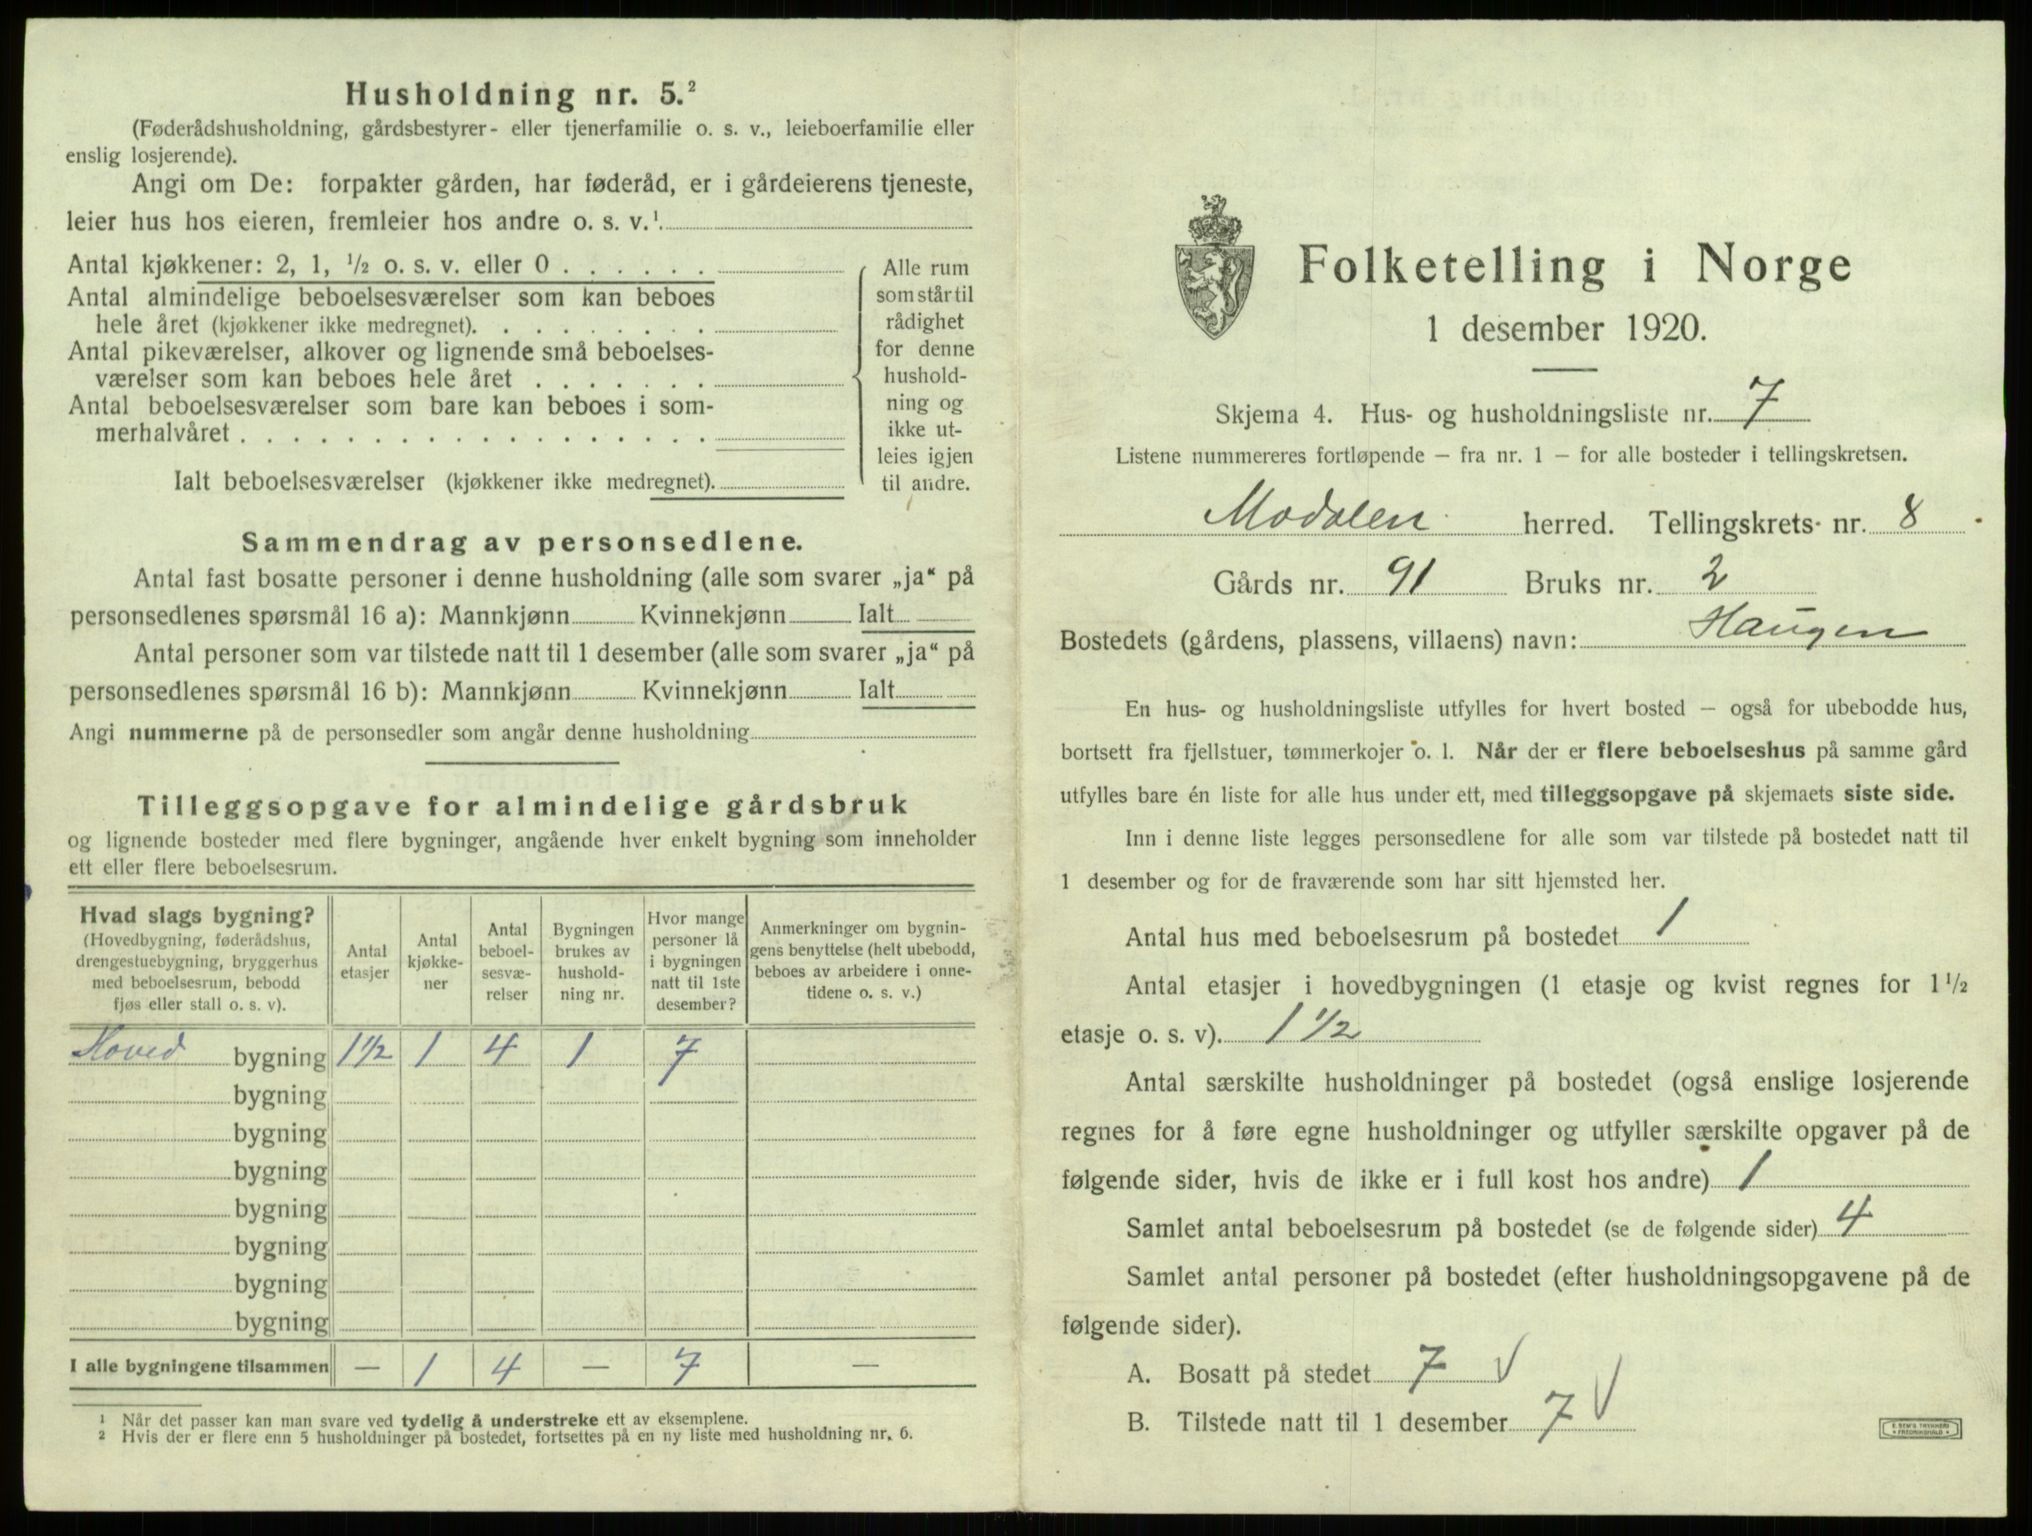 Husholdning nr. 5.²
(Føderådshusholdning, gårdsbestyrer- eller tjenerfamilie o. s. v., leieboerfamilie eller
enslig losjerende).
Angi om De: forpakter gården, har føderåd, er i gårdeierens tjeneste,
leier hus hos eieren, fremleier hos andre o. s. v.¹
Antal kjøkkener: 2, 1, ½ o. s. v. eller 0 . . . . . .
Antal almindelige beboelsesværelser som kan beboes
hele året (kjøkkener ikke medregnet). . . . . . . . .
Antal pikeværelser, alkover og lignende små beboelses-
værelser som kan beboes hele året . . . . . . .
Antal beboelsesværelser som bare kan beboes i som-
merhalvåret . . . . . . . . . . . . . . . . . .
Ialt beboelsesværelser (kjøkkener ikke medregnet).
Alle rum
som står til
rådighet
for denne
hushold-
ning og
ikke ut-
leies igjen
til andre.
Sammendrag av personsedlene.
Antal fast bosatte personer i denne husholdning (alle som svarer „ja“ på
personsedlenes spørsmål 16 a): Mannkjønn Kvinnekjønn Ialt
Antal personer som var tilstede natt til 1 desember (alle som svarer „ja“ på
personsedlenes spørsmål 16 b): Mannkjønn Kvinnekjønn Ialt
Angi nummerne på de personsedler som angår denne husholdning
Tilleggsopgave for almindelige gårdsbruk
og lignende bosteder med flere bygninger, angående hver enkelt bygning som inneholder
ett eller flere beboelsesrum.
Hvad slags bygning?
(Hovedbygning, føderådshus,
drengestuebygning, bryggerhus
med beboelsesrum, bebodd
fjøs eller stall o. s. v).
Antal
etasjer
Antal
kjøkke-
ner
Antal
beboel-
sesvæ-
relser
Bygningen
brukes av
hushold-
ning nr.
Hvor mange
personer lå
i bygningen
natt til 1ste
desember?
Anmerkninger om bygnin-
gens benyttelse (helt ubebodd,
beboes av arbeidere i onne-
tidene o. s. v.)
Hoved bygning 1½ 1 4 1 7
bygning
bygning
bygning
bygning
bygning
bygning
bygning
I alle bygningene tilsammen — 1 4 — 7 —
¹ Når det passer kan man svare ved tydelig å understreke ett av eksemplene.
² Hvis der er flere enn 5 husholdninger på bostedet, fortsettes på en ny liste med husholdning nr. 6.
Folketelling i Norge
1 desember 1920.
Skjema 4. Hus- og husholdningsliste nr. 7
Listene nummereres fortløpende — fra nr. 1 — for alle bosteder i tellingskretsen.
Modalen herred. Tellingskrets nr. 8
Gårds nr. 91 Bruks nr. 2
Bostedets (gårdens, plassens, villaens) navn: Haugen
En hus- og husholdningsliste utfylles for hvert bosted — også for ubebodde hus,
bortsett fra fjellstuer, tømmerkojer o. l. Når der er flere beboelseshus på samme gård
utfylles bare én liste for alle hus under ett, med tilleggsopgave på skjemaets siste side.
Inn i denne liste legges personsedlene for alle som var tilstede på bostedet natt til
1 desember og for de fraværende som har sitt hjemsted her.
Antal hus med beboelsesrum på bostedet 1
Antal etasjer i hovedbygningen (1 etasje og kvist regnes for 1½
etasje o. s. v). 1½
Antal særskilte husholdninger på bostedet (også enslige losjerende
regnes for å føre egne husholdninger og utfyller særskilte opgaver på de
følgende sider, hvis de ikke er i full kost hos andre) 1
Samlet antal beboelsesrum på bostedet (se de følgende sider) 4
Samlet antal personer på bostedet (efter husholdningsopgavene på de
følgende sider).
A. Bosatt på stedet 7 √
B. Tilstede natt til 1 desember 7 √
E. SEM'S TRYKKERI
• FREDRIKSHALD •